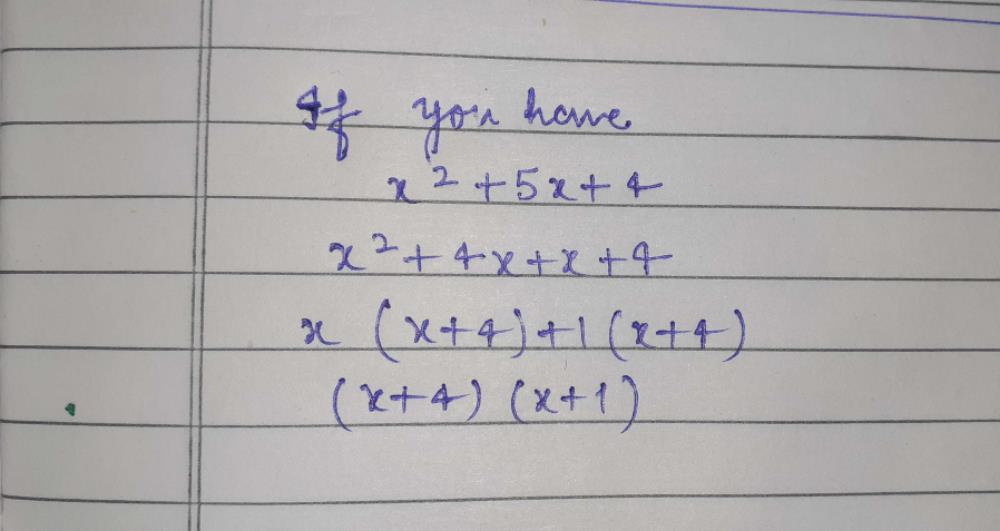 If you have
x² + 5x + 4
x² + 4x + x + 4
x (x+4) + 1 (x+4)
(x+4) (x+1)